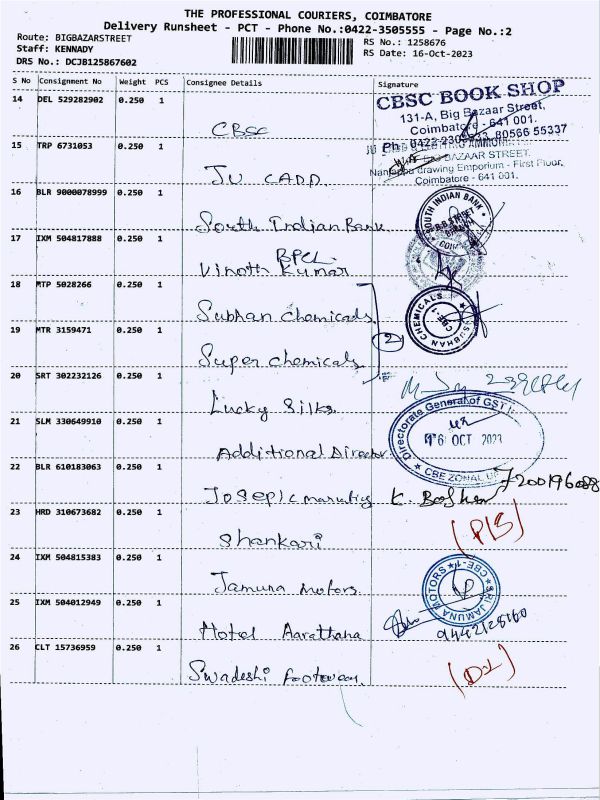 THE PROFESSIONAL COURIERS, COIMBATORE
Delivery Runsheet - PCT - Phone No.:0422-3505555 - Page No.:2
Route: BIGBAZARSTREET
RS No.: 1258676
Staff: KENNADY
RS Date: 16-Oct-2023
DRS No.: DCJB125867602
S No Consignment No Weight PCS Consignee Details Signature
14 DEL 529282902 0.250 1 CBSC
CBSC BOOK SHOP
131-A, Big Bazaar Street,
Coimbatore - 641 001.
80566 55337
15 TRP 6731053 0.250 1 JU CADD
BAZAAR STREET,
Drawing Emporium - First Floor,
Coimbatore - 641 001.
16 BLR 9000078999 0.250 1 South Indian Bank
SOUTH INDIAN BANK
17 IXM 504817888 0.250 1 BPCL
Vinoth Kumar
18 MTP 5028266 0.250 1 Subhan Chemicals
SUBHAN CHEMICALS
CBE-1
19 MTR 3159471 0.250 1 Super Chemicals
2
20 SRT 302232126 0.250 1 Lucky Silks
21 SLM 330649910 0.250 1 Additional Director
Directorate General of GST
16 OCT 2023
CBE ZONAL
22 BLR 610183063 0.250 1
7200196088
23 HRD 310673682 0.250 1 Shankari
24 IXM 504815383 0.250 1 Jamuna Motors
SRI JAMUNA MOTORS
CBE-1
25 IXM 504012949 0.250 1 Hotel Aarathana
26 CLT 15736959 0.250 1 Swadeshi Footwear